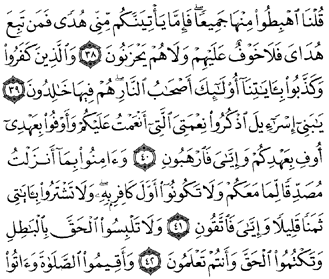 قُلْنَا ٱهْبِطُوا۟ مِنْهَا جَمِيعًا ۖ فَإِمَّا يَأْتِيَنَّكُم مِّنِّى هُدًى فَمَن تَبِعَ
هُدَاىَ فَلَا خَوْفٌ عَلَيْهِمْ وَلَا هُمْ يَحْزَنُونَ ٣٨ وَٱلَّذِينَ كَفَرُوا۟
وَكَذَّبُوا۟ بِـَٔايَـٰتِنَآ أُو۟لَـٰٓئِكَ أَصْحَـٰبُ ٱلنَّارِ ۖ هُمْ فِيهَا خَـٰلِدُونَ ٣٩
يَـٰبَنِىٓ إِسْرَٰٓءِيلَ ٱذْكُرُوا۟ نِعْمَتِىَ ٱلَّتِىٓ أَنْعَمْتُ عَلَيْكُمْ وَأَوْفُوا۟ بِعَهْدِىٓ
أُوفِ بِعَهْدِكُمْ وَإِيَّـٰىَ فَٱرْهَبُونِ ٤٠ وَءَامِنُوا۟ بِمَآ أَنزَلْتُ
مُصَدِّقًا لِّمَا مَعَكُمْ وَلَا تَكُونُوٓا۟ أَوَّلَ كَافِرٍۭ بِهِۦ ۖ وَلَا تَشْتَرُوا۟ بِـَٔايَـٰتِى
ثَمَنًا قَلِيلًا وَإِيَّـٰىَ فَٱتَّقُونِ ٤١ وَلَا تَلْبِسُوا۟ ٱلْحَقَّ بِٱلْبَـٰطِلِ
وَتَكْتُمُوا۟ ٱلْحَقَّ وَأَنتُمْ تَعْلَمُونَ ٤٢ وَأَقِيمُوا۟ ٱلصَّلَوٰةَ وَءَاتُوا۟